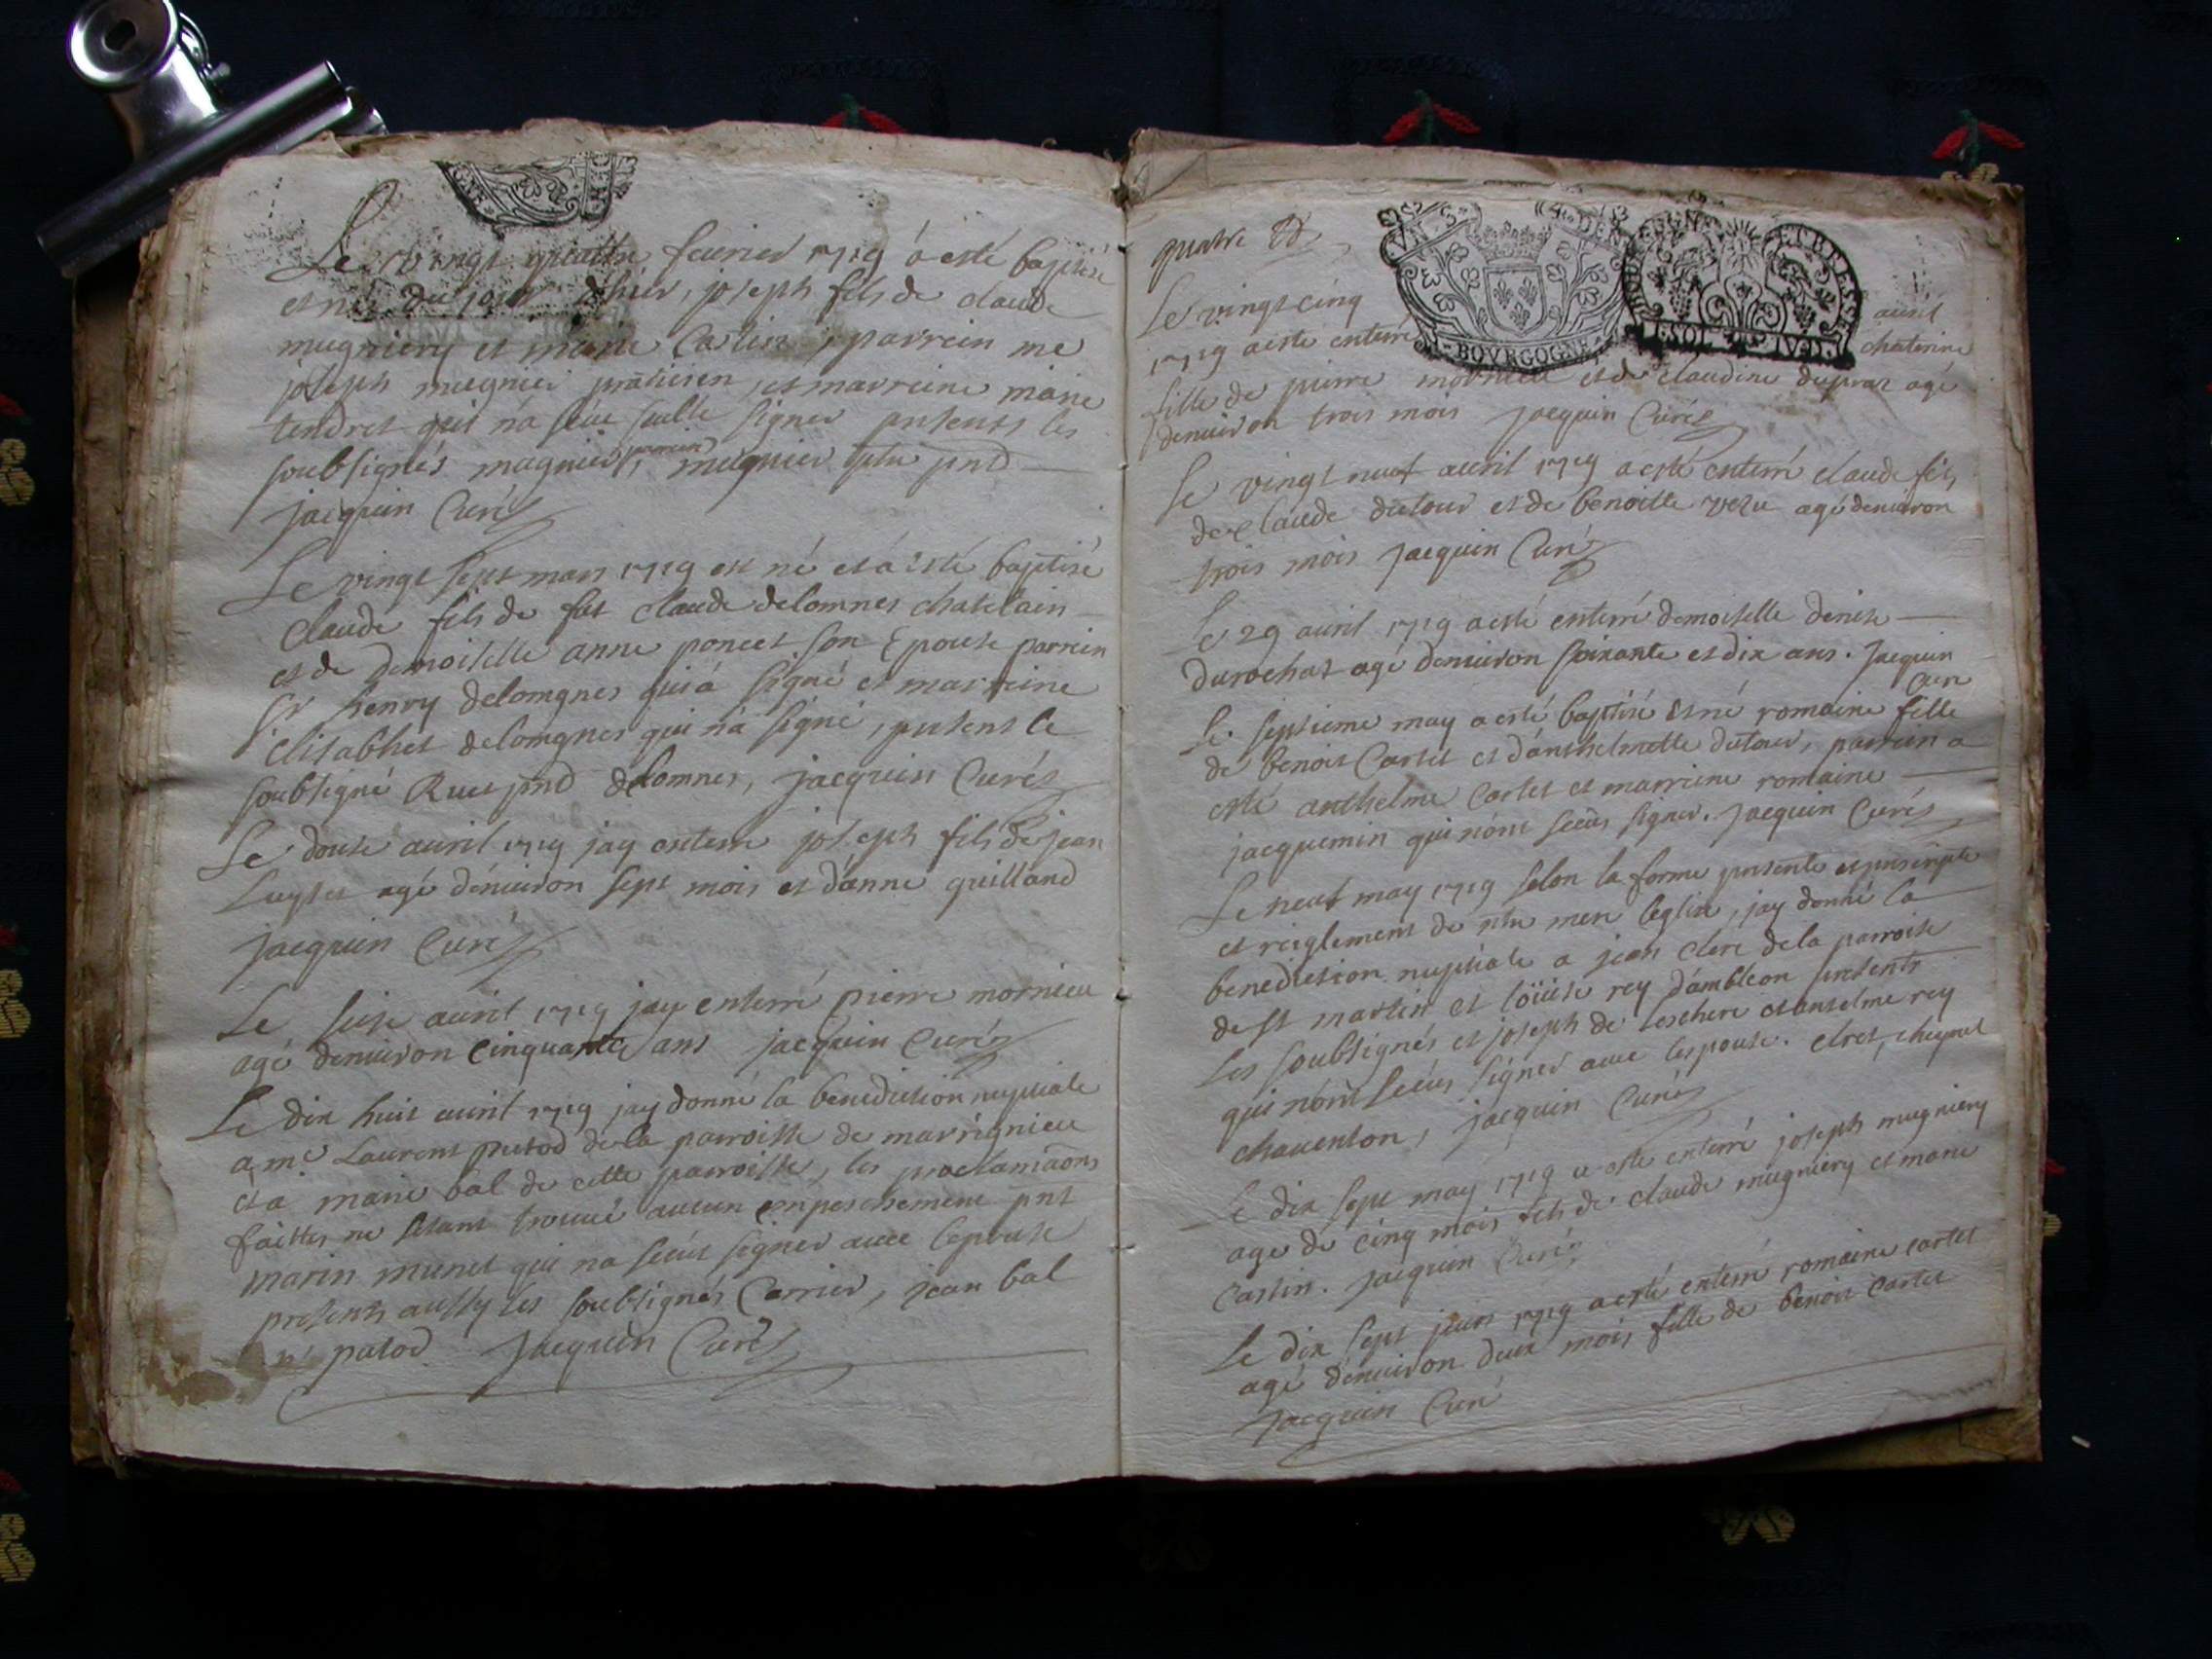 Le vingt quattre feurier 1719 a esté baptisé
et né du jour d'hier, joseph fils de claude
mugniery et marie Castin, parrein me
joseph mugnier praticien, et marreine marie
tendret qui n'a sceu seulle signer presents les
soubsignés mugnier, parrein mugnier pnt
jacquin Curé
Le vingt sept mars 1719 est né et a esté baptisé
Claude fils de fut Claude delomnes chatelain
et de demoiselle anne poncet son Epouse parrein
Sr henry delomgnes qui a signé et marreine
Elisabhet delomgnes qui n'a signé, present le
soubsigné Ruet pnt delomnes, jacquin Curé
Le douse auril 1719 jay enterré joseph fils de jean
Luyset agé denuiron sept mois et d'anne guilland
jacquin Curé
Le seise auril 1719 jay enterré pierre mornieu
agé denuiron Cinquante ans jacquin Curé
Le dix huit auril 1719 jay donné la benediction nuptiale
a me Laurent putod de la parroisse de marrignieu
et a marie bal de cette parroisse, les proclamaons
faittes ne sétant trouué aucun empeschement pnt
marin munet qui na sceut signer auec l'epouse
presents aussy les soubsignés Carrier, jean bal
putod jacquin Curé
quatre d
GNE
VN S
4 DEN
BOVRGOGNE
ET BRESSE
SOL
IVD
Le vingt cinq auril
1719 a esté enterré chaterine
fille de pierre mornieu et de claudine dupraz agé
denuiron trois mois jacquin Curé
Le vingt neuf auril 1719 a esté enterré claude fils
de claude dutour et de benoitte vezu agé denuiron
trois mois jacquin Curé
Le 29 auril 1719 a esté enterré demoiselle denise
durochat agé denuiron soixante et dix ans. jacquin
Curé
Le septieme may a esté baptisé et né romaine fille
de benoit Cartet et d'anthelmette dutour, parrein a
esté anthelme Cartet et marreine romaine
jacquemin qui n'ont sceus signer. jacquin Curé
Le neuf may 1719 selon la forme presente et prescripte
et reiglement de ntre mere leglise, jay donné la
benediction nuptiale a jean clere de la parroise
de st martin et loüise rey d'ambleon presents
les soubsignés et joseph de leschere et antelme rey
qui n'ont sceus signer auec lespouse. cleret, cheynet
chauenton, jacquin Curé
Le dix sept may 1719 a esté enterré joseph mugniery
agé de cinq mois fils de claude mugniery et marie
Castin. jacquin Curé
Le dix sept juin 1719 a esté enterré romaine cartet
agé denuiron deux mois fille de benoit Cartet
jacquin Curé